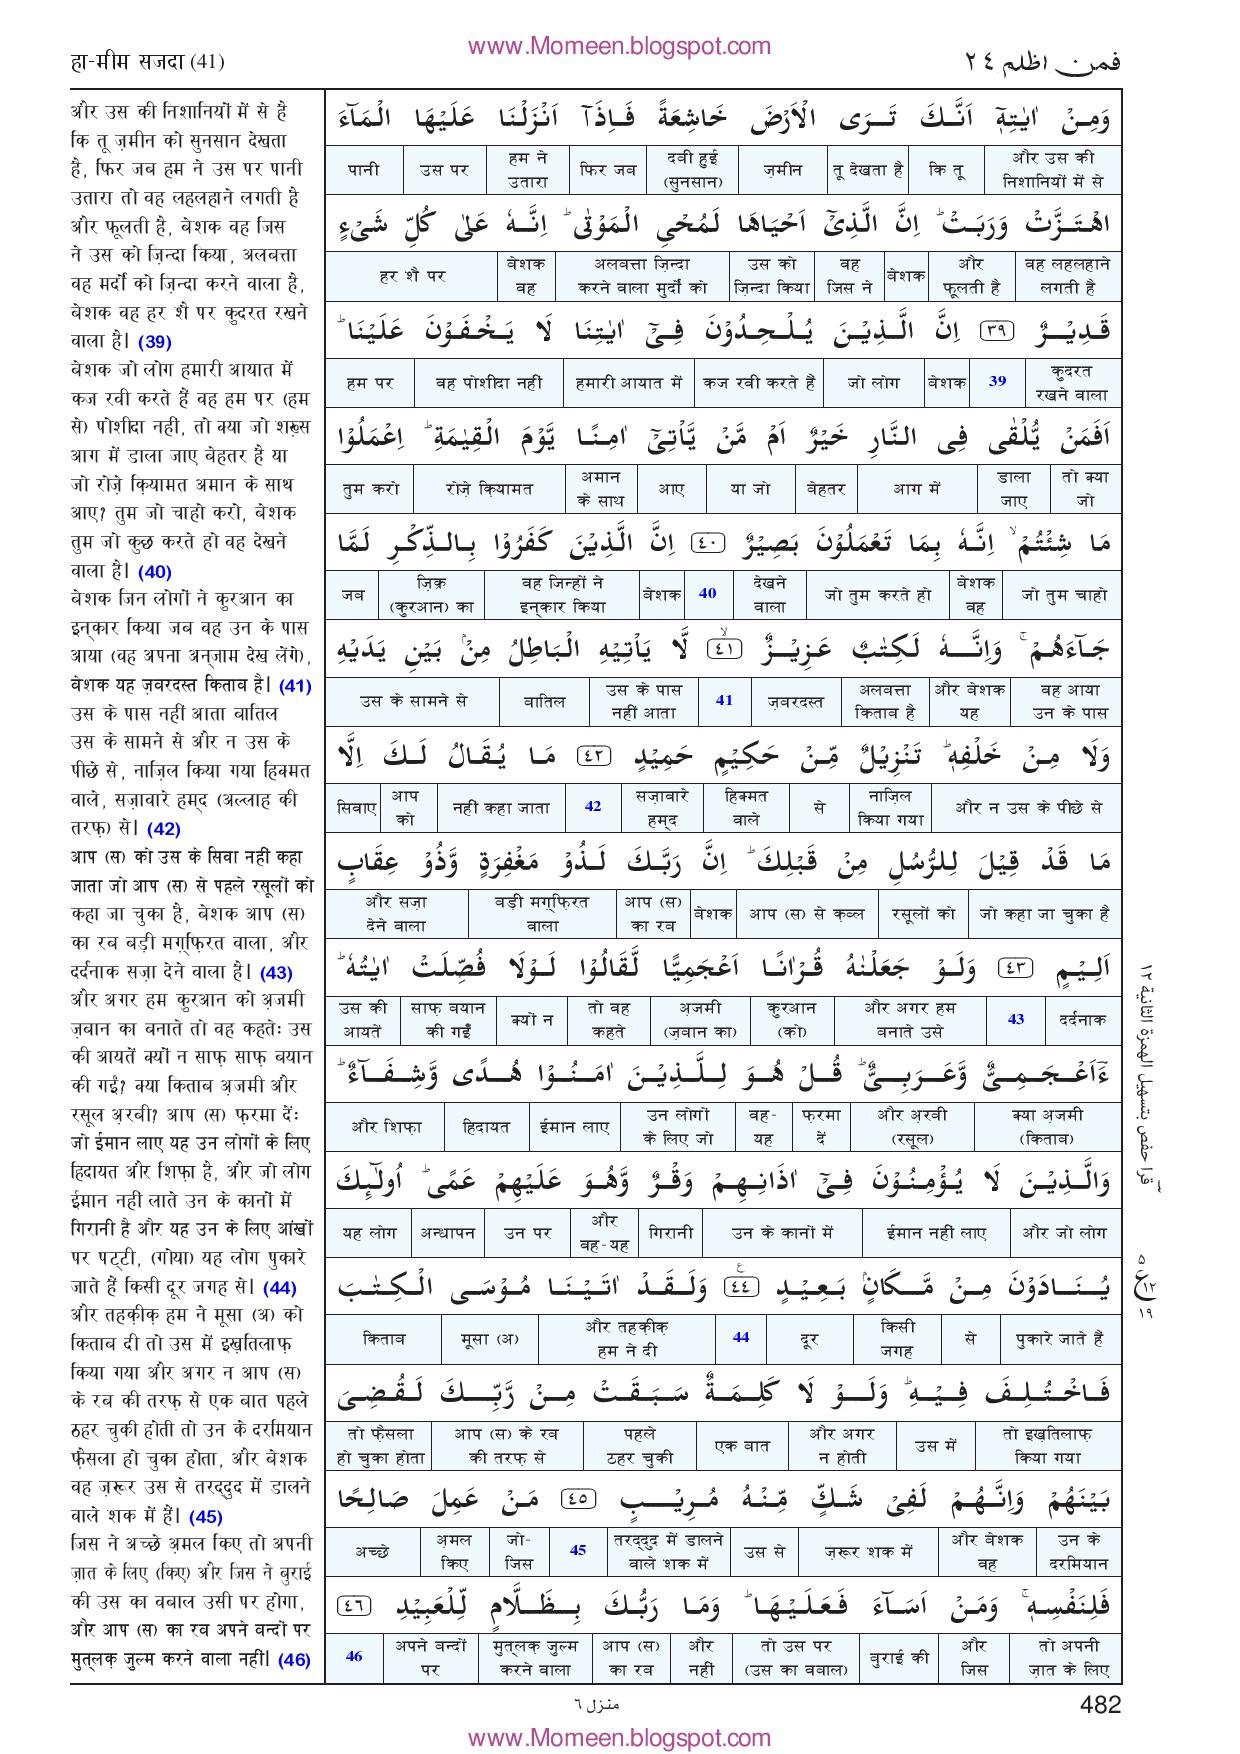 www.Momeen.blogspot.com
हा-मीम सजदा (41)
فمن اظلم ٢٤
और उस की निशानियों में से है
कि तू ज़मीन को सुनसान देखता
है, फिर जब हम ने उस पर पानी
उतारा तो वह लहलहाने लगती है
और फूलती है, बेशक वह जिस
ने उस को ज़िन्दा किया, अलबत्ता
वह मर्दों को ज़िन्दा करने वाला है,
बेशक वह हर शै पर कुदरत रखने
वाला है। (39)
बेशक जो लोग हमारी आयात में
कज रवी करते हैं वह हम पर (हम
से) पोशीदा नहीं, तो क्या जो शख़्स
आग में डाला जाए बेहतर है या
जो रोज़े क़ियामत अमान के साथ
आए? तुम जो चाहो करो, बेशक
तुम जो कुछ करते हो वह देखने
वाला है। (40)
बेशक जिन लोगों ने कुरआन का
इन्कार किया जब वह उन के पास
आया (वह अपना अन्जाम देख लेंगे),
बेशक यह ज़बरदस्त किताब है। (41)
उस के पास नहीं आता बातिल
उस के सामने से और न उस के
पीछे से, नाज़िल किया गया हिक्मत
वाले, सज़ावारे हम्द (अल्लाह की
तरफ़) से। (42)
आप (स) को उस के सिवा नहीं कहा
जाता जो आप (स) से पहले रसूलों को
कहा जा चुका है, बेशक आप (स)
का रब बड़ी मग़्फ़िरत वाला, और
दर्दनाक सज़ा देने वाला है। (43)
और अगर हम कुरआन को अ़जमी
ज़बान का बनाते तो वह कहतेः उस
की आयतें क्यों न साफ़ साफ़ बयान
की गईं? क्या किताब अ़जमी और
रसूल अ़रबी? आप (स) फ़रमा देंः
जो ईमान लाए यह उन लोगों के लिए
हिदायत और शिफ़ा है, और जो लोग
ईमान नहीं लाते उन के कानों में
गिरानी है और यह उन के लिए आंखों
पर पट्टी, (गोया) यह लोग पुकारे
जाते हैं किसी दूर जगह से। (44)
और तहक़ीक़ हम ने मूसा (अ) को
किताब दी तो उस में इख़तिलाफ़
किया गया और अगर न आप (स)
के रब की तरफ़ से एक बात पहले
ठहर चुकी होती तो उन के दरमियान
फ़ैसला हो चुका होता, और बेशक
वह ज़रूर उस से तरद्दुद में डालने
वाले शक में हैं। (45)
जिस ने अच्छे अ़मल किए तो अपनी
ज़ात के लिए (किए) और जिस ने बुराई
की उस का वबाल उसी पर होगा,
और आप (स) का रब अपने बन्दों पर
मुत्लक़ ज़ुल्म करने वाला नहीं। (46)
وَمِنْ اٰيٰتِهٖٓ اَنَّكَ تَرَى الْاَرْضَ خَاشِعَةً فَاِذَآ اَنْزَلْنَا عَلَيْهَا الْمَآءَ
और उस की निशानियों में से | कि तू | तू देखता है | ज़मीन | दबी हुई (सुनसान) | फिर जब | हम ने उतारा | उस पर | पानी
اهْتَزَّتْ وَرَبَتْ ؕ اِنَّ الَّذِىْٓ اَحْيَاهَا لَمُحْىِ الْمَوْتٰى ؕ اِنَّهٗ عَلٰى كُلِّ شَىْءٍ
वह लहलहाने लगती है | और फूलती है | बेशक | वह जिस ने | उस को ज़िन्दा किया | अलबत्ता ज़िन्दा करने वाला मुर्दों को | बेशक वह | हर शै पर
قَدِيْرٌ ﴿٣٩﴾ اِنَّ الَّذِيْنَ يُلْحِدُوْنَ فِىْٓ اٰيٰتِنَا لَا يَخْفَوْنَ عَلَيْنَا ؕ
कुदरत रखने वाला | 39 | बेशक | जो लोग | कज रवी करते हैं | हमारी आयात में | वह पोशीदा नहीं | हम पर
اَفَمَنْ يُّلْقٰى فِى النَّارِ خَيْرٌ اَمْ مَّنْ يَّاْتِىْٓ اٰمِنًا يَّوْمَ الْقِيٰمَةِ ؕ اِعْمَلُوْا
तो क्या जो | डाला जाए | आग में | बेहतर | या जो | आए | अमान के साथ | रोज़े क़ियामत | तुम करो
مَا شِئْتُمْ ۙ اِنَّهٗ بِمَا تَعْمَلُوْنَ بَصِيْرٌ ﴿٤٠﴾ اِنَّ الَّذِيْنَ كَفَرُوْا بِالذِّكْرِ لَمَّا
जो तुम चाहो | बेशक वह | जो तुम करते हो | देखने वाला | 40 | बेशक | वह जिन्हों ने इन्कार किया | ज़िक्र (कुरआन) का | जब
جَآءَهُمْ ۚ وَاِنَّهٗ لَكِتٰبٌ عَزِيْزٌ ﴿٤١﴾ ۙ لَّا يَاْتِيْهِ الْبَاطِلُ مِنْۢ بَيْنِ يَدَيْهِ
वह आया उन के पास | और बेशक यह | अलबत्ता किताब है | ज़बरदस्त | 41 | उस के पास नहीं आता | बातिल | उस के सामने से
وَلَا مِنْ خَلْفِهٖ ؕ تَنْزِيْلٌ مِّنْ حَكِيْمٍ حَمِيْدٍ ﴿٤٢﴾ مَا يُقَالُ لَكَ اِلَّا
और न उस के पीछे से | नाज़िल किया गया | से | हिक्मत वाले | सज़ावारे हम्द | 42 | नहीं कहा जाता | आप को | सिवाए
مَا قَدْ قِيْلَ لِلرُّسُلِ مِنْ قَبْلِكَ ؕ اِنَّ رَبَّكَ لَذُوْ مَغْفِرَةٍ وَّذُوْ عِقَابٍ
जो कहा जा चुका है | रसूलों को | आप (स) से क़ब्ल | बेशक | आप (स) का रब | बड़ी मग़्फ़िरत वाला | और सज़ा देने वाला
اَلِيْمٍ ﴿٤٣﴾ وَلَوْ جَعَلْنٰهُ قُرْاٰنًا اَعْجَمِيًّا لَّقَالُوْا لَوْلَا فُصِّلَتْ اٰيٰتُهٗ ؕ
दर्दनाक | 43 | और अगर हम बनाते उसे | कुरआन (को) | अ़जमी (ज़बान का) | तो वह कहते | क्यों न | साफ़ बयान की गईं | उस की आयतें
ءَاَعْجَمِىٌّ وَّعَرَبِىٌّ ؕ قُلْ هُوَ لِلَّذِيْنَ اٰمَنُوْا هُدًى وَّشِفَآءٌ ؕ
क्या अ़जमी (किताब) | और अ़रबी (रसूल) | फ़रमा दें | वह-यह | उन लोगों के लिए जो | ईमान लाए | हिदायत | और शिफ़ा
وَالَّذِيْنَ لَا يُؤْمِنُوْنَ فِىْٓ اٰذَانِهِمْ وَقْرٌ وَّهُوَ عَلَيْهِمْ عَمًى ؕ اُولٰٓئِكَ
और जो लोग | ईमान नहीं लाए | उन के कानों में | गिरानी | और वह-यह | उन पर | अन्धापन | यह लोग
يُنَادَوْنَ مِنْ مَّكَانٍۢ بَعِيْدٍ ﴿٤٤﴾ وَلَقَدْ اٰتَيْنَا مُوْسَى الْكِتٰبَ
पुकारे जाते हैं | से | किसी जगह | दूर | 44 | और तहक़ीक़ हम ने दी | मूसा (अ) | किताब
فَاخْتُلِفَ فِيْهِ ؕ وَلَوْ لَا كَلِمَةٌ سَبَقَتْ مِنْ رَّبِّكَ لَقُضِىَ
तो इख़तिलाफ़ किया गया | उस में | और अगर न होती | एक बात | पहले ठहर चुकी | आप (स) के रब की तरफ़ से | तो फ़ैसला हो चुका होता
بَيْنَهُمْ وَاِنَّهُمْ لَفِىْ شَكٍّ مِّنْهُ مُرِيْبٍ ﴿٤٥﴾ مَنْ عَمِلَ صَالِحًا
उन के दरमियान | और बेशक वह | ज़रूर शक में | उस से | तरद्दुद में डालने वाले शक में | 45 | जो-जिस | अ़मल किए | अच्छे
فَلِنَفْسِهٖ ۚ وَمَنْ اَسَآءَ فَعَلَيْهَا ؕ وَمَا رَبُّكَ بِظَلَّامٍ لِّلْعَبِيْدِ ﴿٤٦﴾
तो अपनी ज़ात के लिए | और जिस | बुराई की | तो उस पर (उस का वबाल) | और नहीं | आप (स) का रब | मुत्लक़ ज़ुल्म करने वाला | अपने बन्दों पर | 46
قرأ حفص بتسهيل الهمزة الثانية ١٢
٥
ع ١٢
١٩
منزل ٦
482
www.Momeen.blogspot.com